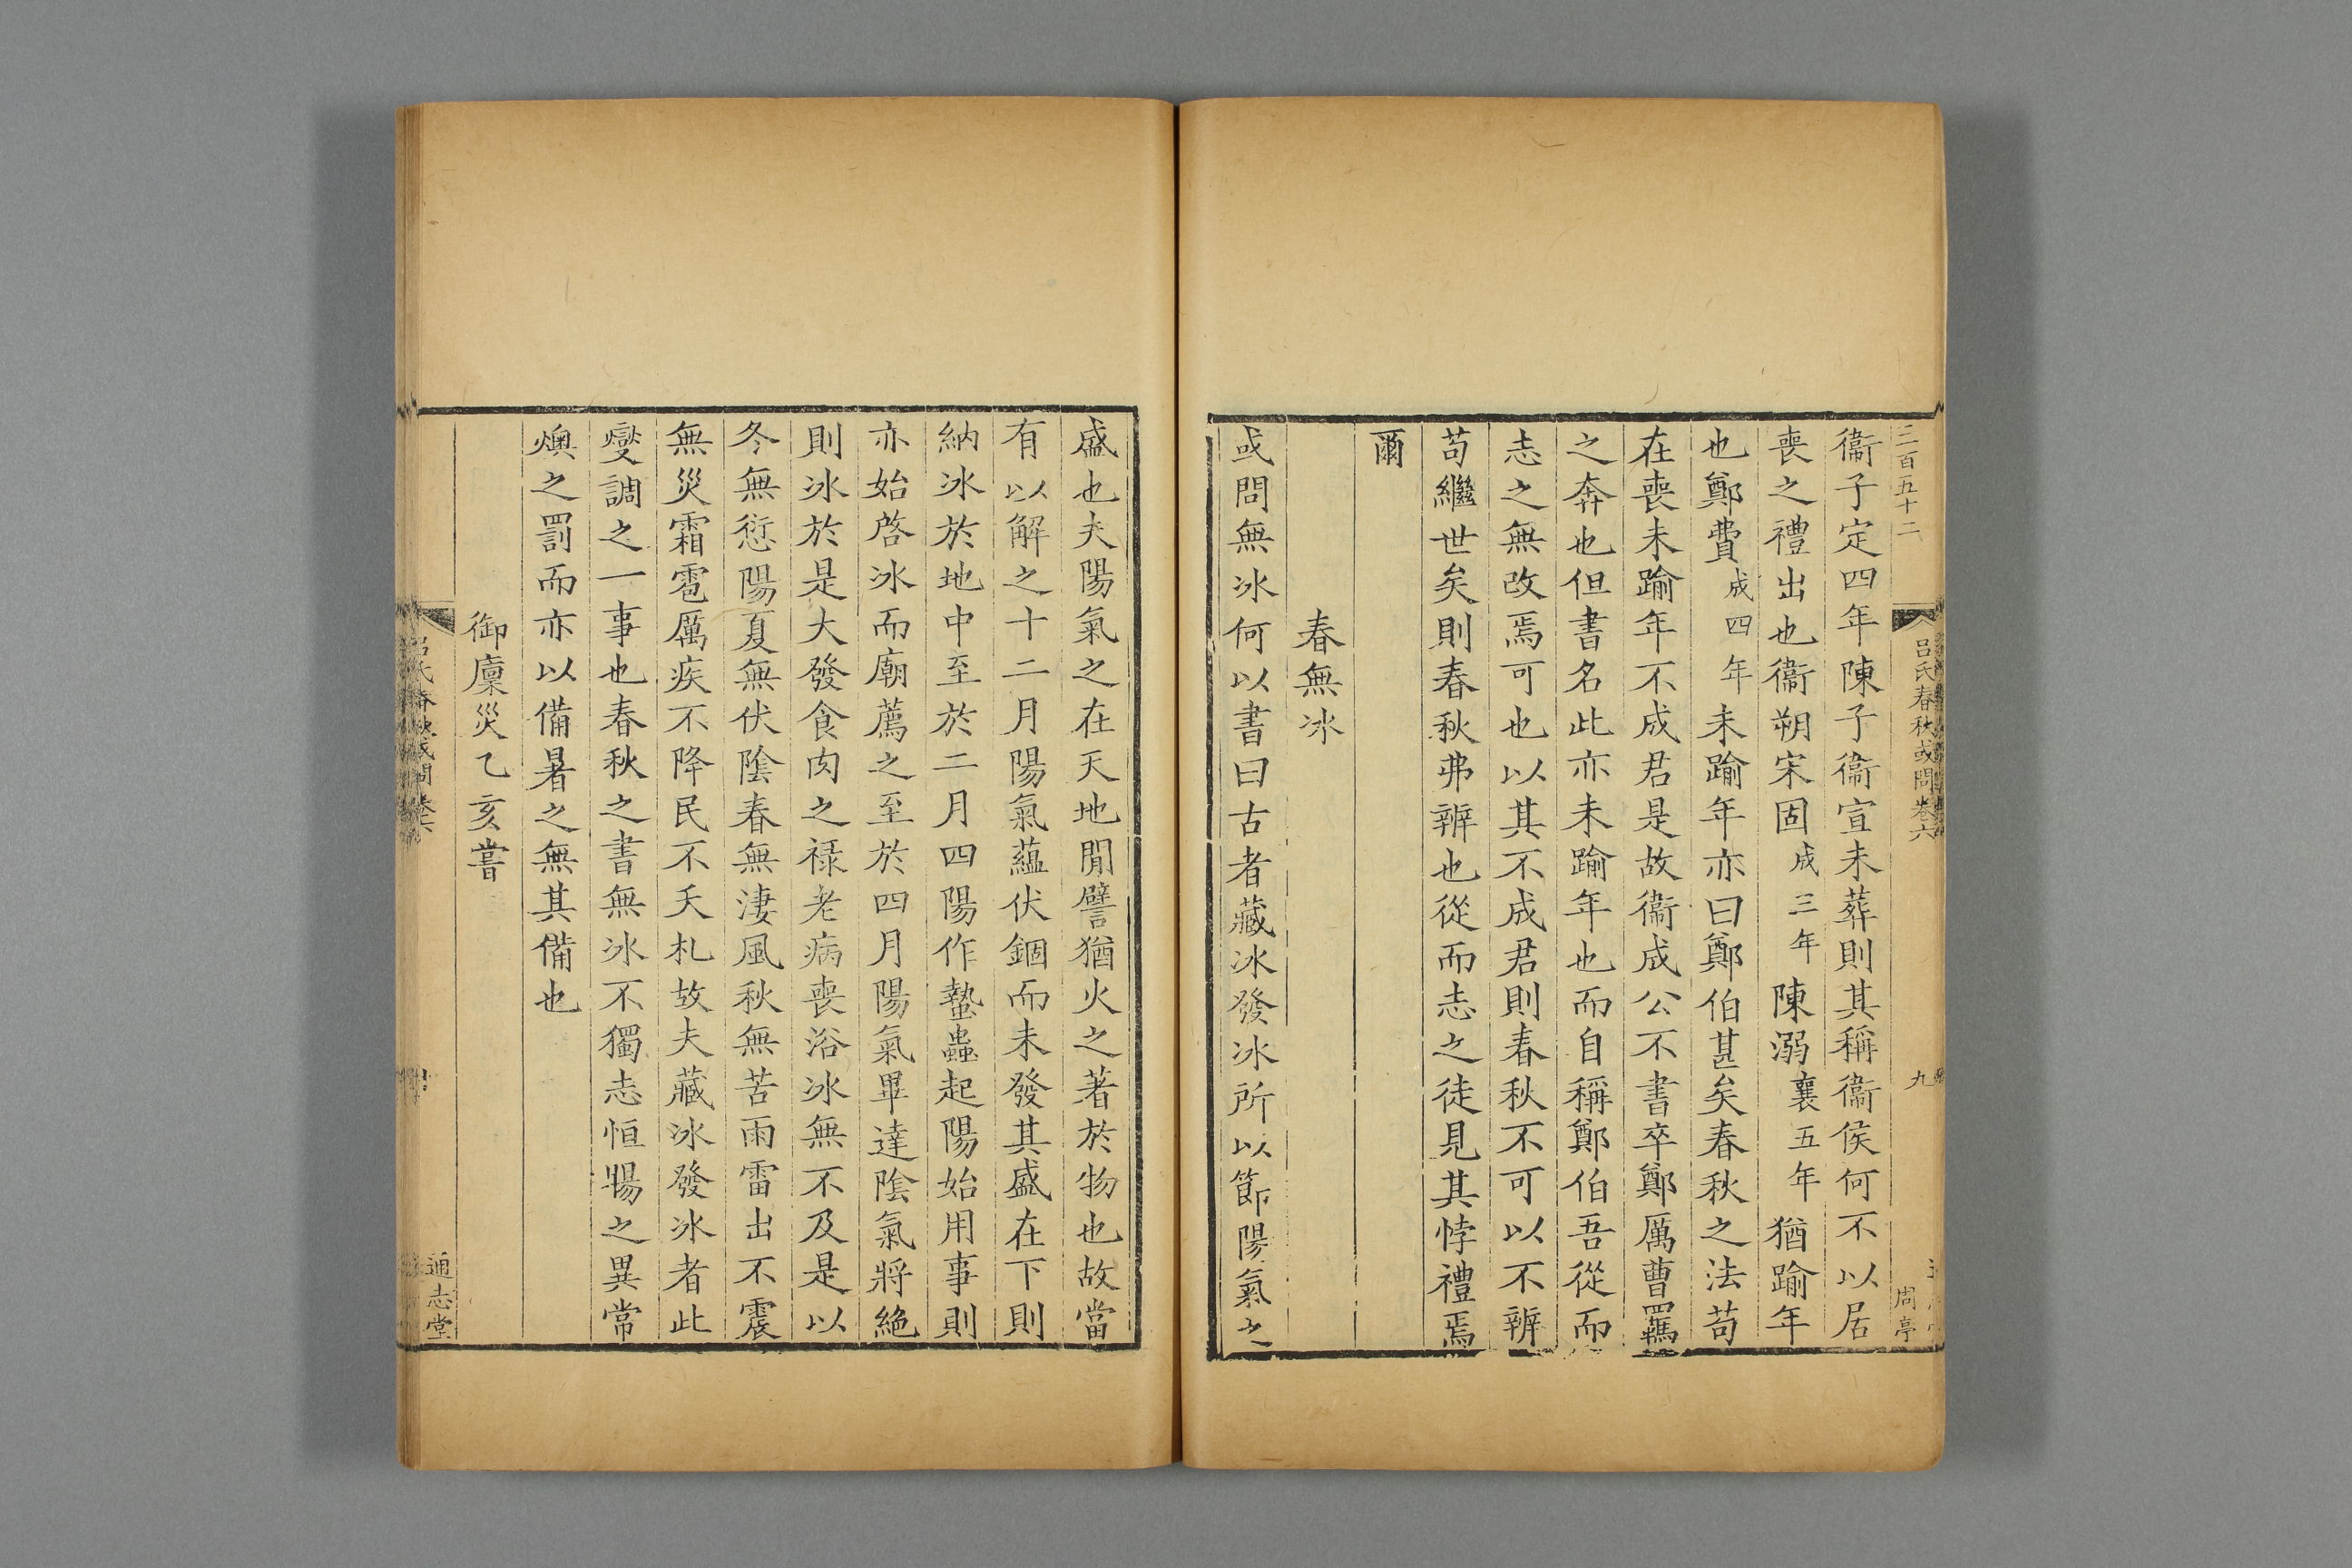 三百五十二
呂氏春秋或問卷六
九
周亭
衞子定四年陳子衞宣未葬則其稱衞侯何不以居
喪之禮出也衞朔宋固成三年陳溺襄五年猶踰年
也鄭費成四年未踰年亦曰鄭伯甚矣春秋之法苟
在喪未踰年不成君是故衞成公不書卒鄭厲曹羈
之奔也但書名此亦未踰年也而自稱鄭伯吾從而
志之無改焉可也以其不成君則春秋不可以不辨
苟繼世矣則春秋弗辨也從而志之徒見其悖禮焉
爾
春無冰
或問無冰何以書曰古者藏冰發冰所以節陽氣之
盛也夫陽氣之在天地閒譬猶火之著於物也故當
有以解之十二月陽氣蘊伏錮而未發其盛在下則
納冰於地中至於二月四陽作蟄蟲起陽始用事則
亦始啓冰而廟薦之至於四月陽氣畢達陰氣將絕
則冰於是大發食肉之祿老病喪浴冰無不及是以
冬無愆陽夏無伏陰春無淒風秋無苦雨雷出不震
無災霜雹厲疾不降民不夭札故夫藏冰發冰者此
燮調之一事也春秋之書無冰不獨志恒暘之異常
燠之罰而亦以備暑之無其備也
御廩災乙亥嘗
呂氏春秋或問卷六
通志堂